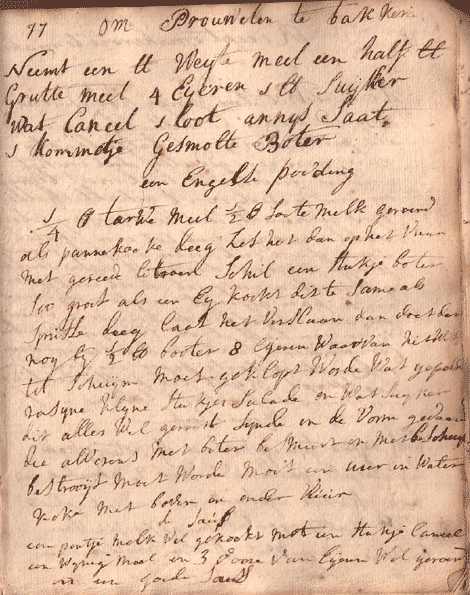 77 om Prouwelen te bakken
Neemt een lb Weyte meel een half lb
Grutte meel 4 Eyeren s lb Suyker
Wat Caneel s loot annys Saat,
s kommetje Gesmolte Boter
een Engelse podding
1/4 lb tarwe meel 1/2 lb soete melk geroerd
als pannekooke deeg Zet het dan op het Vuur
met gereed Schil een stukje boter
soo groot als een Ey kookt dit te Same als
deeg laat het Verslaan dan doet dan
nog by 1/2 lb booter 8 Eyeren Waarvan het Wit
tot Schuym moet geklopt Worde Wat
rosyne klyne stukjes Salade en Wat Suyker
dit alles Wel geroert Synde in de Vorm gedaan
die alvorens met boter besmeert en met beschuyt
bestrooyt moet Worde moet een uur in Water
koke met boven en onder Vuur
de Saus
een pintje melk Wel gekookt met een stukje Caneel
een Wynig meel en 3 doore Van Eyeren Wel geroert
is een goede Saus